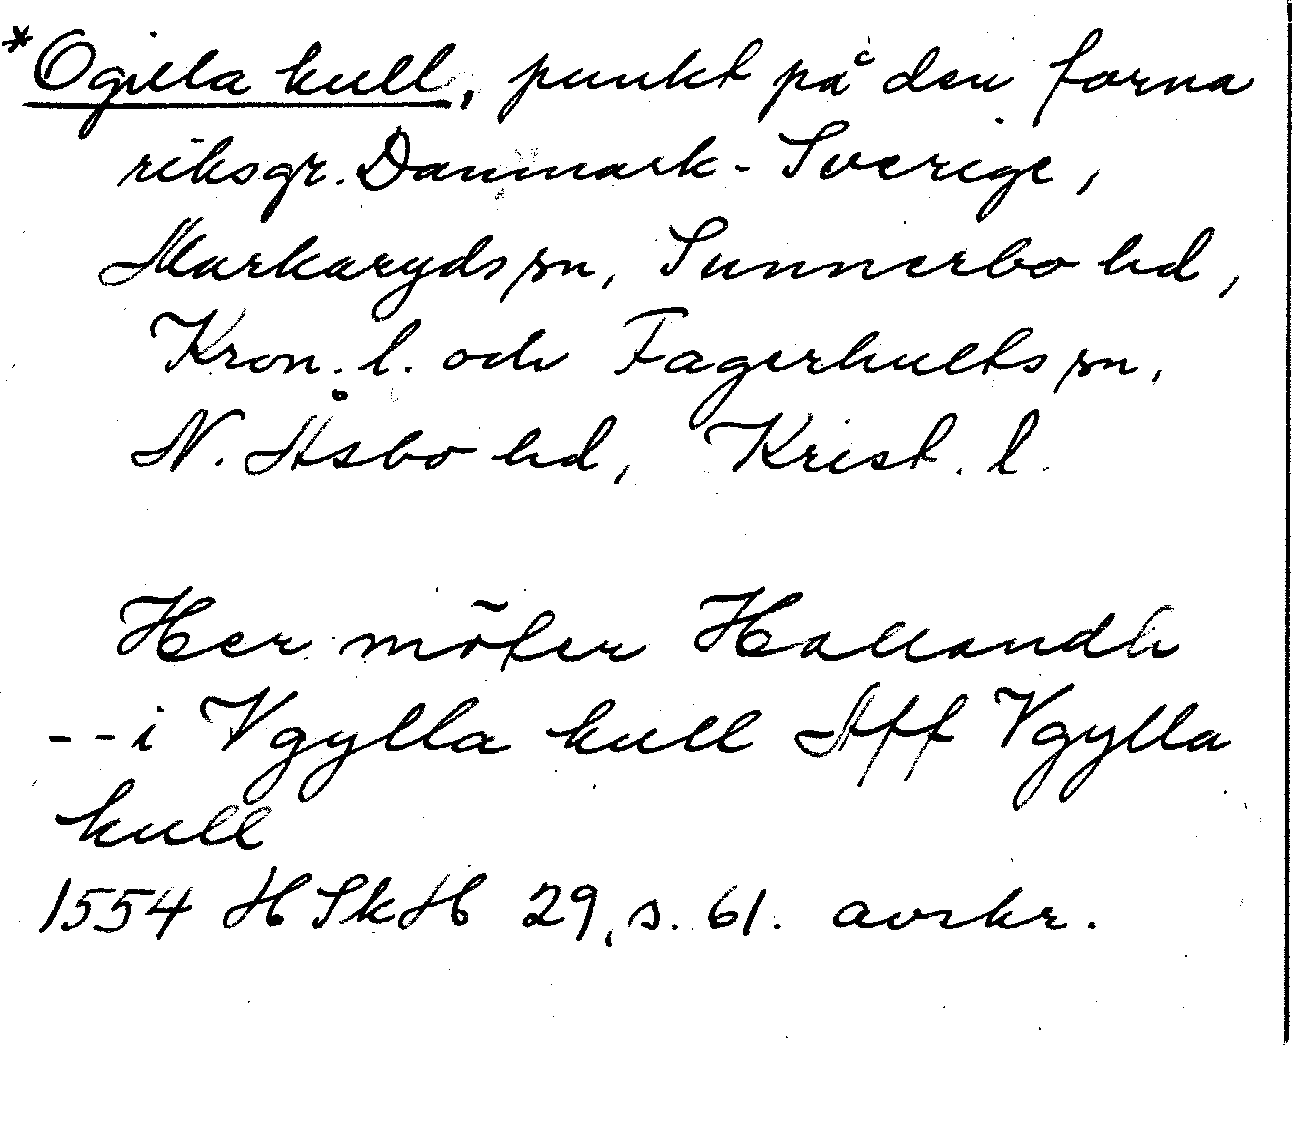 *Ogilla kull, punkt på den forna
riksgr. Danmark - Sverige,
Markaryds sn, Sunnerbo hd,
Kron. l. och Fagerhults sn,
N. Åsbo hd, Krist. l.
Her möter Hallandh
-- i Vgylla kull Aff Vgylla
kull
1554 HSkH 29, s. 61. avskr.